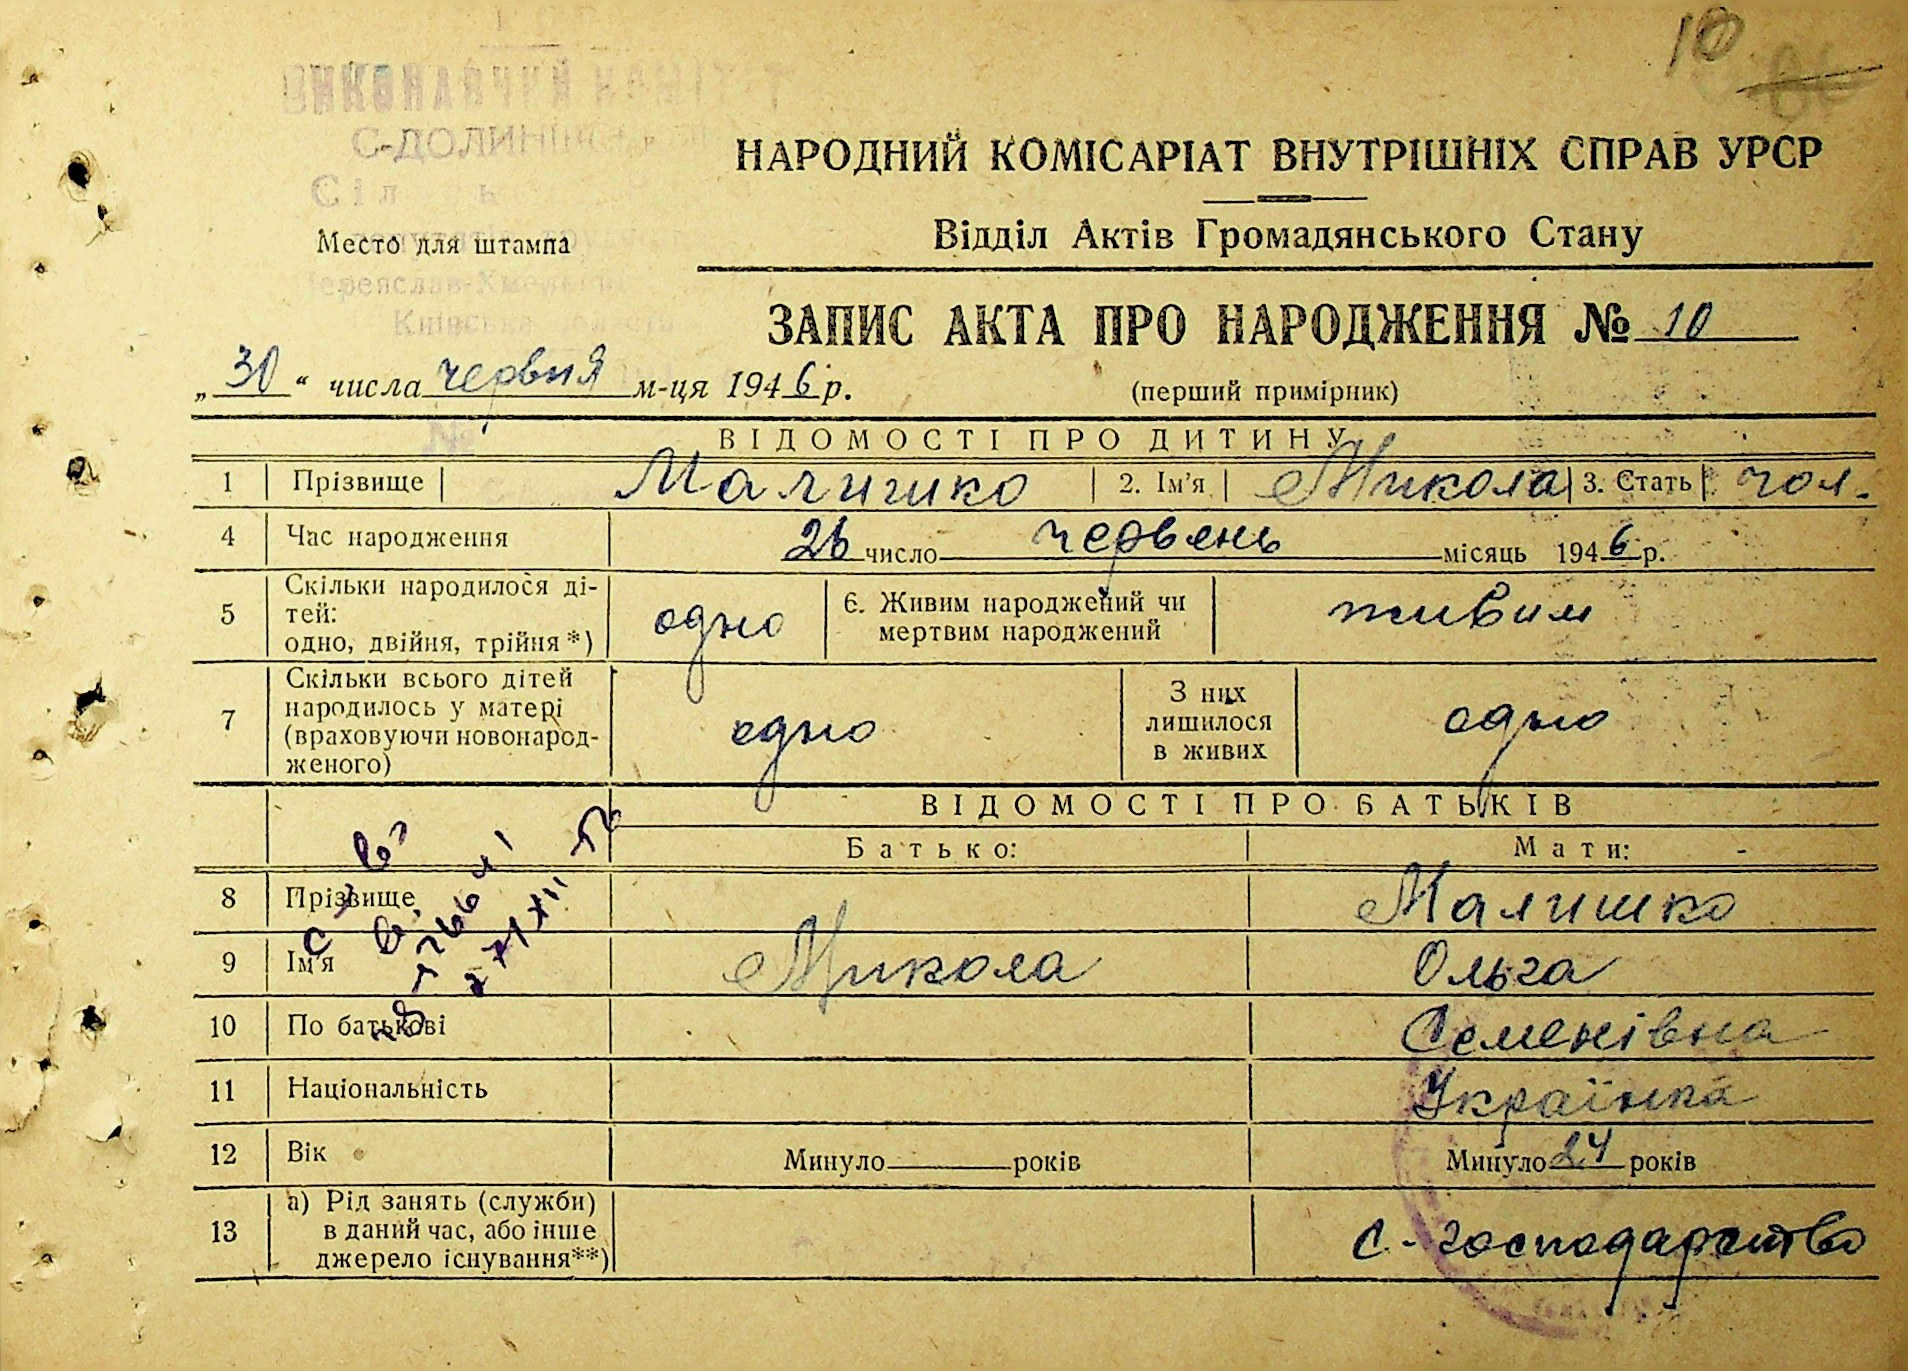 10
ВИКОНАВЧИЙ КОМІТЕТ
С-ДОЛИНІВСЬК
Сіл ь
НАРОДНИЙ КОМІСАРІАТ ВНУТРІШНІХ СПРАВ УРСР
Место для штампа
Відділ Актів Громадянського Стану
Переяслав-Хмельн
Київська область
ЗАПИС АКТА ПРО НАРОДЖЕННЯ № 10
„30“ числа червня м-ця 1946 р.
(перший примірник)
№
ВІДОМОСТІ ПРО ДИТИНУ
1 Прізвище Малишко 2. Ім'я Микола 3. Стать чол.
4 Час народження 26 число червень місяць 1946 р.
5 Скільки народилося ді-
тей:
одно, двійня, трійня *) одно 6. Живим народжений чи
мертвим народжений живим
7 Скільки всього дітей
народилось у матері
(враховуючи новонарод-
женого) одно З них
лишилося
в живих одно
ВІДОМОСТІ ПРО БАТЬКІВ
Батько: Мати:
8 Прізвище Малишко
9 Ім'я Микола Ольга
10 По батькові Семенівна
11 Національність Українка
12 Вік Минуло років Минуло 24 років
13 а) Рід занять (служби)
в даний час, або інше
джерело існування**) с-господарство